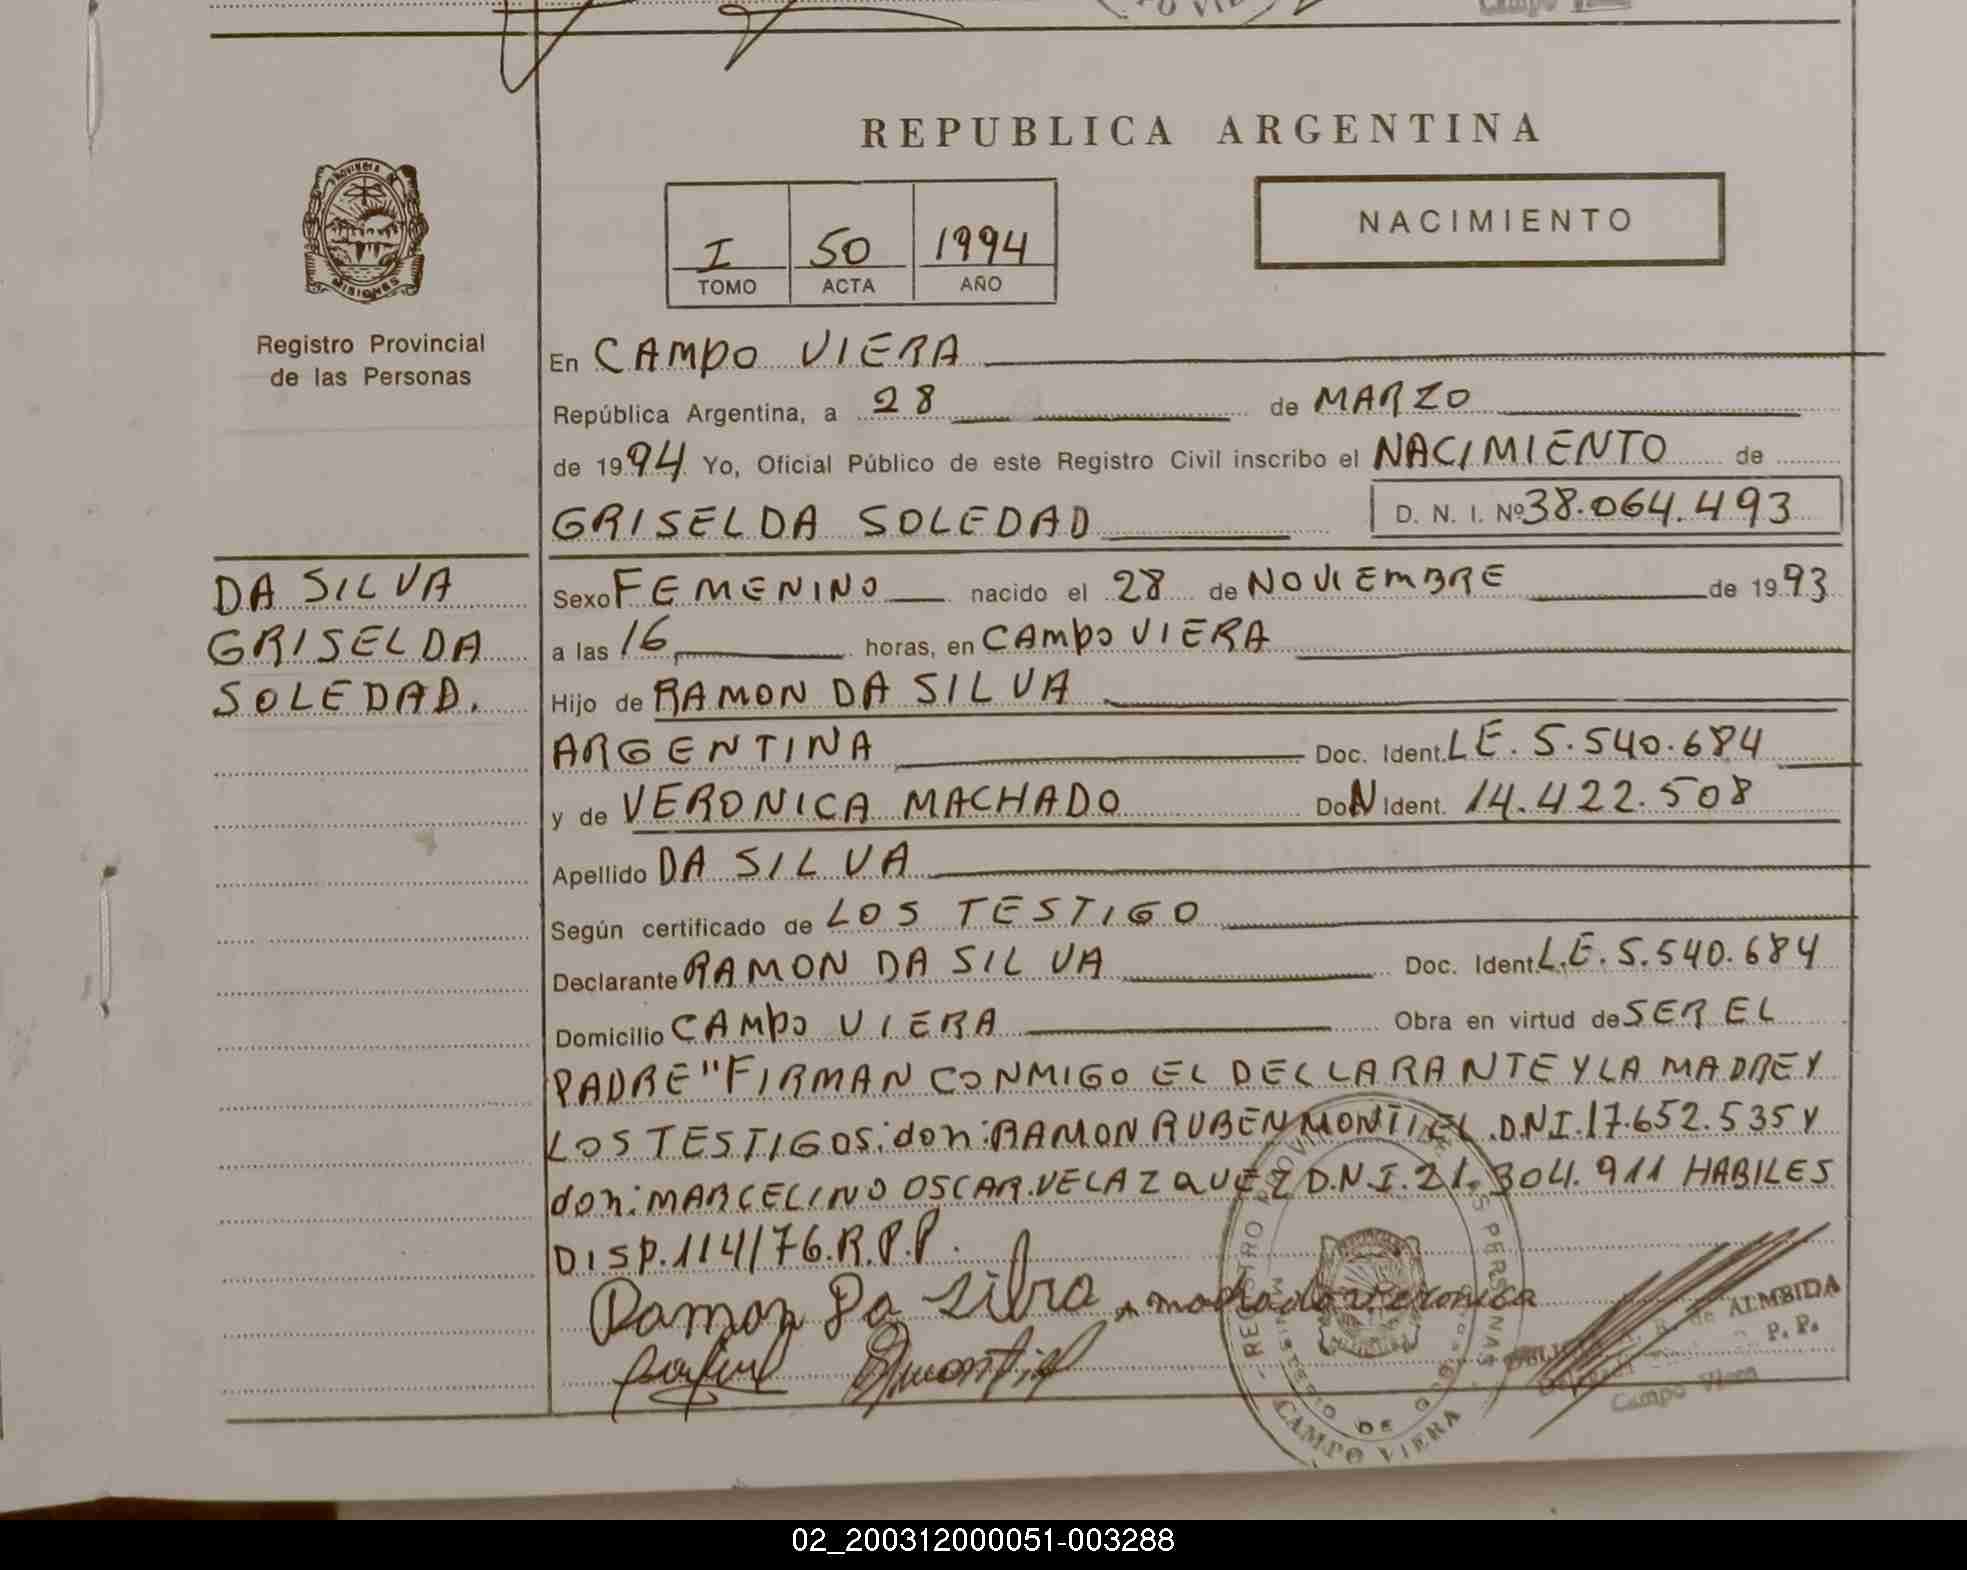 REPUBLICA ARGENTINA
PROVINCIA DE
MISIONES
I 50 1994
TOMO ACTA AÑO
NACIMIENTO
Registro Provincial
de las Personas
En CAMPO VIERA
República Argentina, a 28 de MARZO
de 1994 Yo, Oficial Público de este Registro Civil inscribo el NACIMIENTO de
GRISELDA SOLEDAD D. N. I. Nº 38.064.493
DA SILVA
GRISELDA
SOLEDAD.
Sexo FEMENINO nacido el 28 de NOVIEMBRE de 1993
a las 16 horas, en CAMPO VIERA
Hijo de RAMON DA SILVA
ARGENTINA Doc. Ident. LE. 5.540.684
y de VERONICA MACHADO DoN Ident. 14.422.508
Apellido DA SILVA
Según certificado de LOS TESTIGO
Declarante RAMON DA SILVA Doc. Ident. L.E. 5.540.684
Domicilio CAMPO VIERA Obra en virtud de SER EL
PADRE "FIRMAN CONMIGO EL DECLARANTE Y LA MADRE Y
LOS TESTIGOS: don: RAMON RUBEN MONTIEL D.N.I. 17.652.535 Y
don: MARCELINO OSCAR VELAZQUEZ D.N.I. 21.304.911 HABILES
DISP. 114/76. R.P.P.
Ramon Da Silva machado veronica
REGISTRO PROVINCIAL DE LAS PERSONAS
MINISTERIO DE GOBIERNO
CAMPO VIERA
de ALMEIDA
P. P.
Campo Viera
02_200312000051-003288